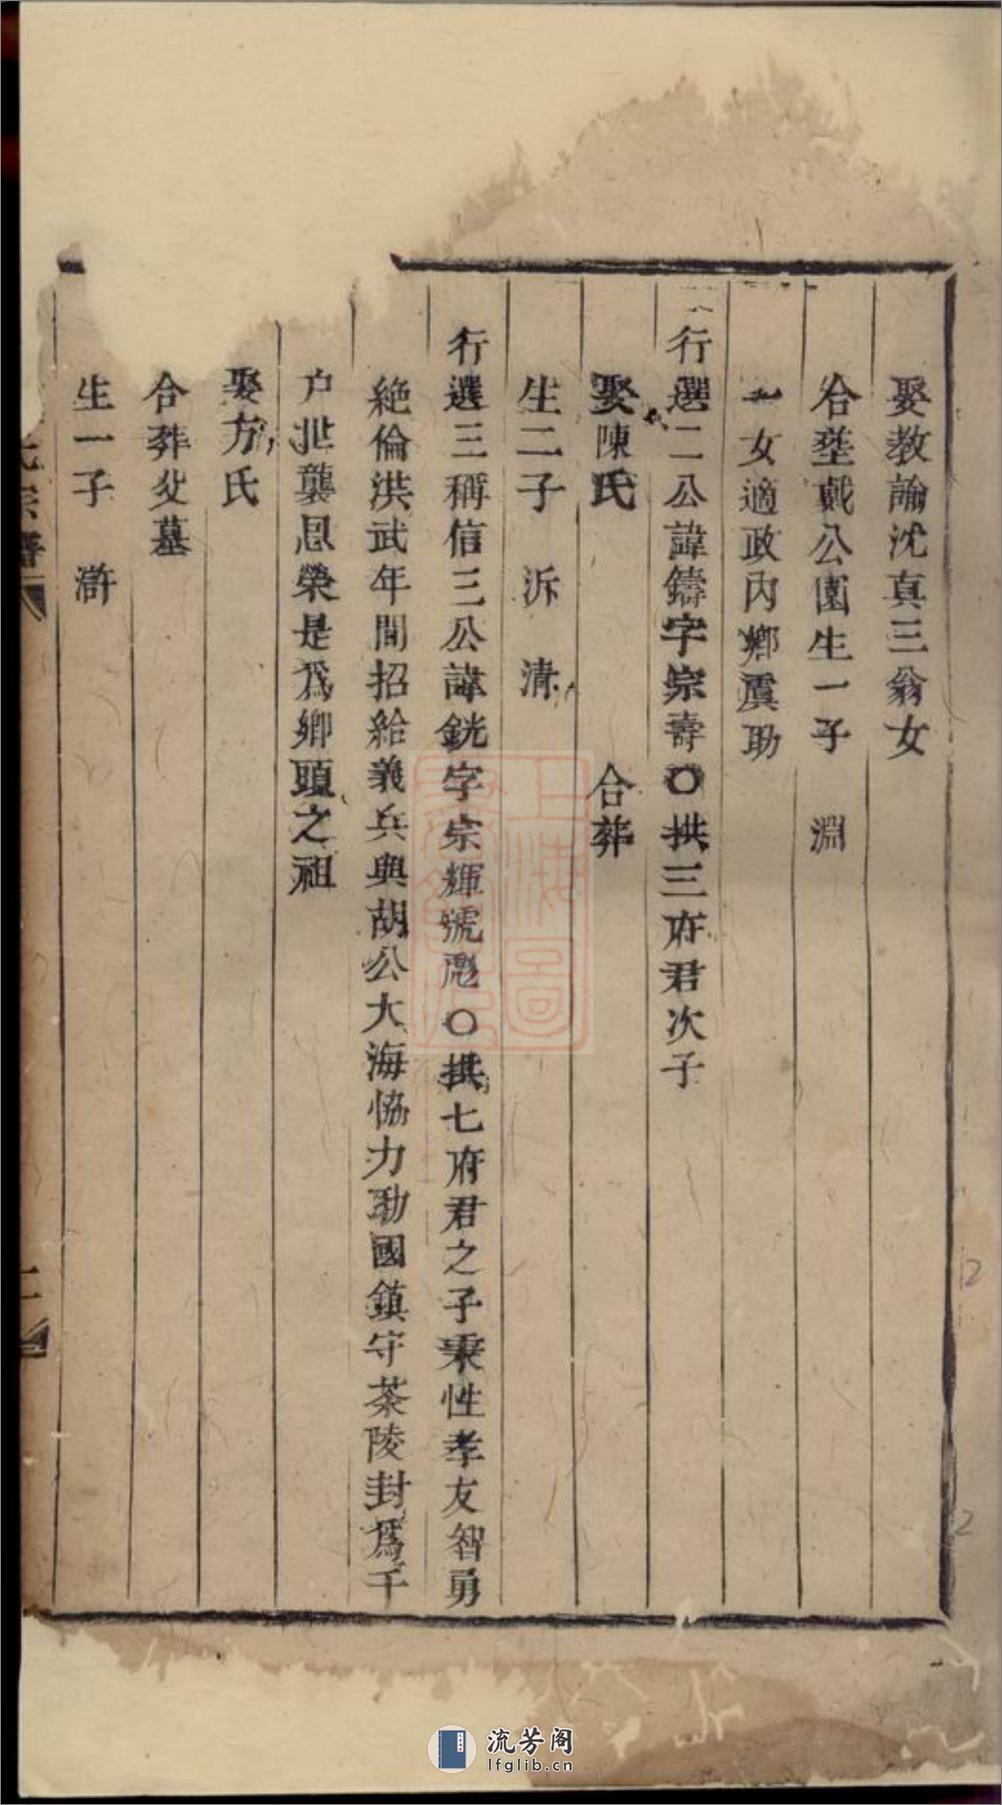 娶教諭沈真三翁女
合塟戴公園生一子 淵
一女適政內鄉虞助
行選二公諱鑄字宗壽○拱三府君次子
娶陳氏 合葬
生二子 泝 清
行選三稱信三公諱銧字宗輝號彪○拱七府君之子秉性孝友智勇
絶倫洪武年間招給義兵與胡公大海恊力勷國鎮守茶陵封爲千
户世襲恩榮是爲鄉頭之祖
娶方氏
合葬父墓
生一子 滸
宗譜
二
上海圖書館藏
流芳阁
lfglib.cn